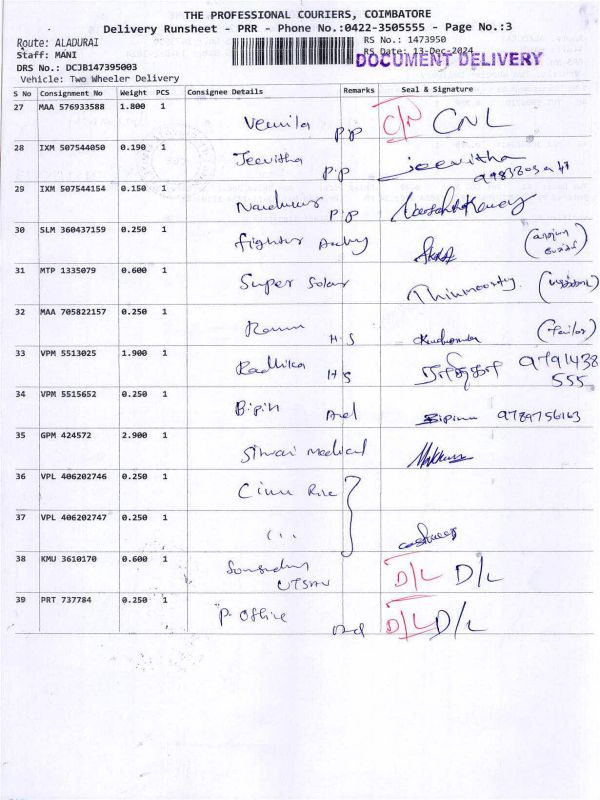 THE PROFESSIONAL COURIERS, COIMBATORE
Delivery Runsheet - PRR - Phone No.:0422-3505555 - Page No.:3
Route: ALADURAI
RS No.: 1473950
Staff: MANI
RS Date: 13-Dec-2024
DOCUMENT DELIVERY
DRS No.: DCJB147395003
Vehicle: Two Wheeler Delivery
S No Consignment No Weight PCS Consignee Details Remarks Seal & Signature
27 MAA 576933588 1.800 1 Vennila P.P C/N CNL
28 IXM 507544050 0.190 1 Jeevitha P.P Jeevitha
29 IXM 507544154 0.150 1 P.P
30 SLM 360437159 0.250 1
31 MTP 1335079 0.600 1 Super Solar
32 MAA 705822157 0.250 1 H.S (Tailor)
33 VPM 5513025 1.900 1 Radhika H S 9791438
555
34 VPM 5515652 0.250 1 Bipin Bipin 9789756163
35 GPM 424572 2.900 1 Medical
36 VPL 406202746 0.250 1
37 VPL 406202747 0.250 1
38 KMU 3610170 0.600 1 D/L D/L
UTSAV
39 PRT 737784 0.250 1 P. Office D/L D/L